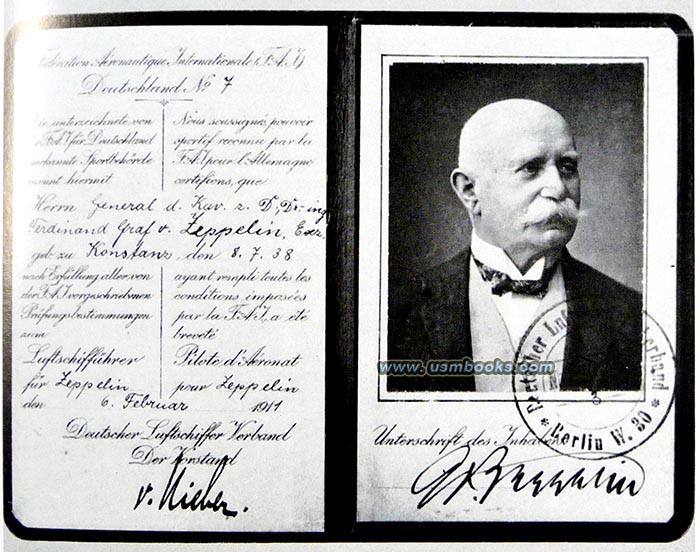 Fédération Aéronautique Internationale (F.A.I)
Deutschland No 7
Die unterzeichnete von
der F.A.I für Deutschland
anerkannte Sportbehörde
ernennt hiermit
Nous soussignés, pouvoir
sportif reconnu par la
F.A.I pour l'Allemagne
certifions, que
Herrn General d. Kav. z. D., Dr.-ing
Ferdinand Graf v. Zeppelin, Exz.
geb. zu Konstanz, den 8. 7. 38
nach Erfüllung aller von
der F.A.I vorgeschriebnen
Prüfungsbestimmungen
zum
ayant rempli toutes les
conditions imposées
par la F.A.I, a été
breveté
Luftschifführer
für Zeppelin
Pilote d'Aéronat
pour Zeppelin
den 6. Februar 1911
Deutscher Luftschiffer Verband
Der Vorstand
v. Nieber.
www.usmbooks.com
Deutscher Verband
* Berlin W. 30 *
Unterschrift des Inhabers